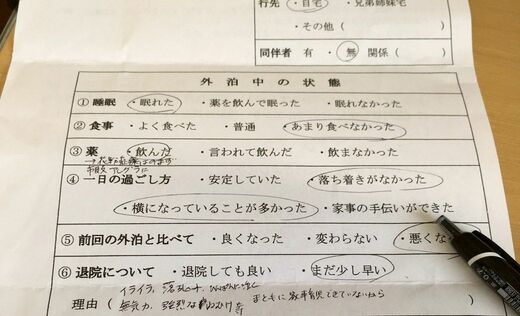 行先 ・自宅 ・兄弟姉妹宅
・その他（ ）
同伴者 有 ・ 無 関係（ ）
外泊中の状態
① 睡眠 ・眠れた ・薬を飲んで眠った ・眠れなかった
② 食事 ・よく食べた ・普通 ・あまり食べなかった
③ 薬 ・飲んだ ・言われて飲んだ ・飲まなかった
④ 一日の過ごし方 ・安定していた ・落ち着きがなかった
・横になっていることが多かった ・家事の手伝いができた
⑤ 前回の外泊と比べて ・良くなった ・変わらない ・悪くな
⑥ 退院について ・退院しても良い ・まだ少し早い
イライラ
理由（ 無気力、強烈な